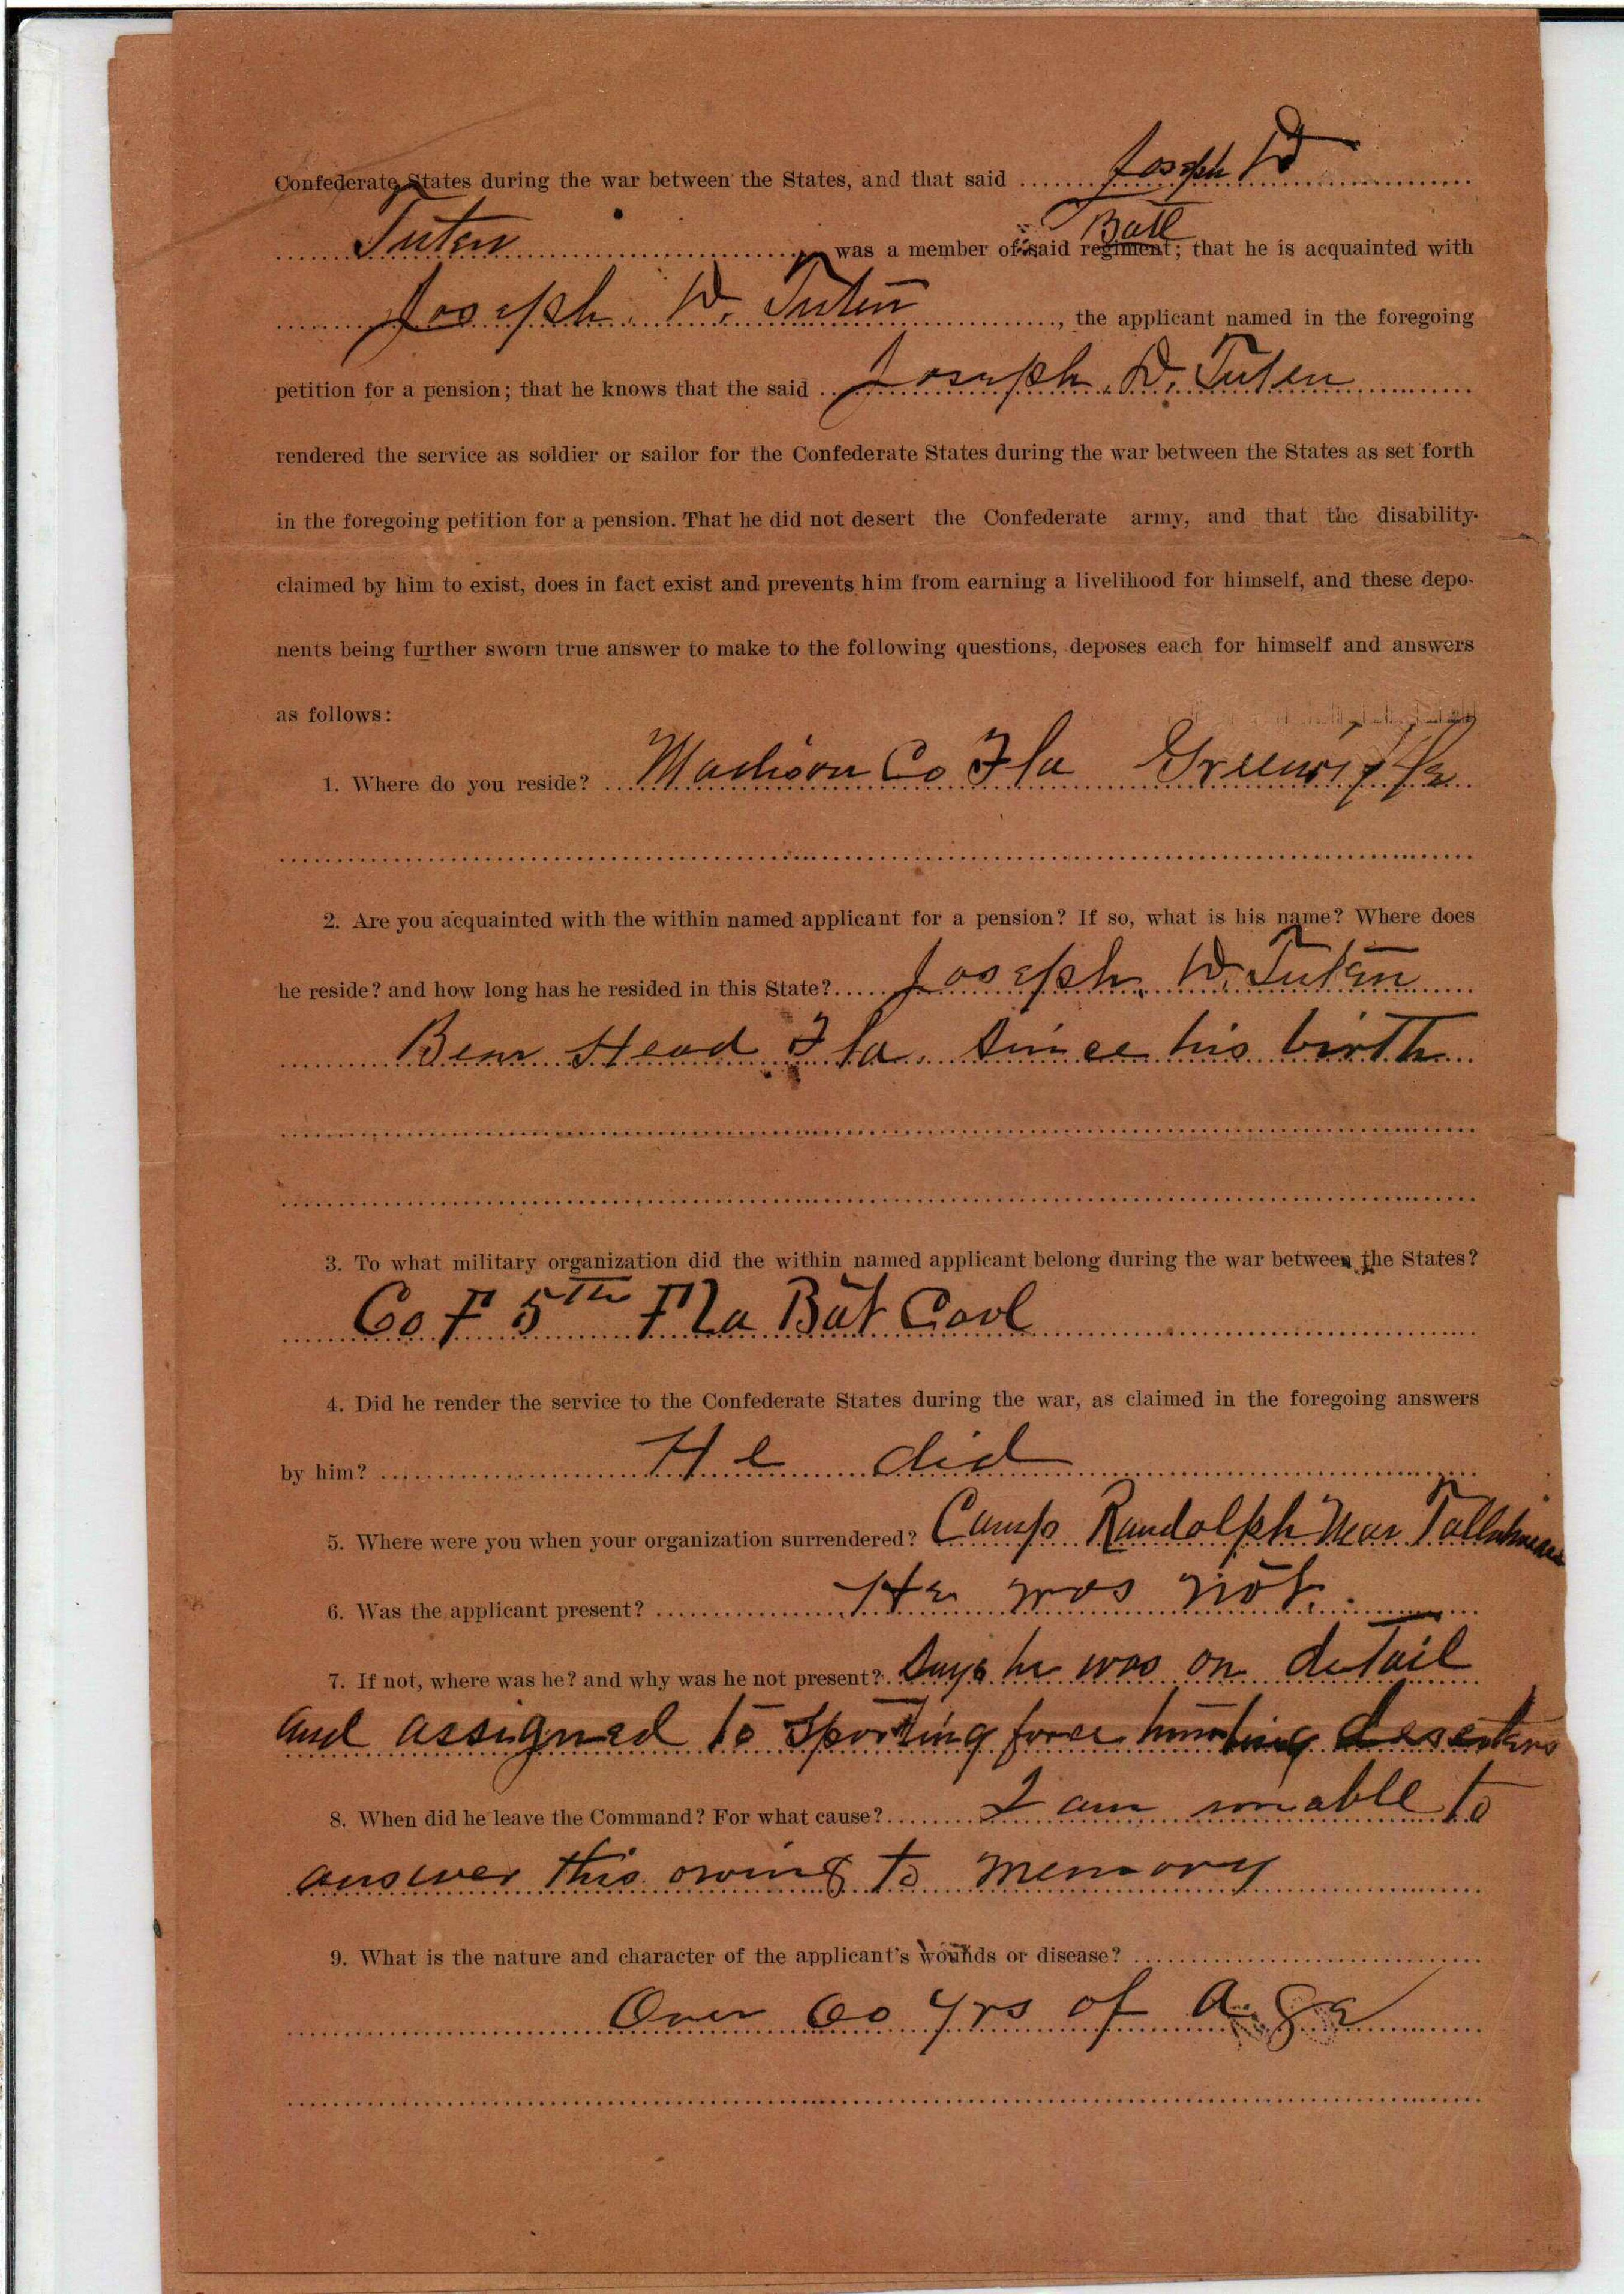 Confederate States during the war between the States, and that said Joseph D
Tuten was a member of said regiment; Batt that he is acquainted with
Joseph D. Tuten, the applicant named in the foregoing
petition for a pension; that he knows that the said Joseph D. Tuten
rendered the service as soldier or sailor for the Confederate States during the war between the States as set forth
in the foregoing petition for a pension. That he did not desert the Confederate army, and that the disability
claimed by him to exist, does in fact exist and prevents him from earning a livelihood for himself, and these depo-
nents being further sworn true answer to make to the following questions, deposes each for himself and answers
as follows:
1. Where do you reside? Madison Co Fla
2. Are you acquainted with the within named applicant for a pension? If so, what is his name? Where does
he reside? and how long has he resided in this State? Joseph D. Tuten
Bear Head Fla. Since his birth
3. To what military organization did the within named applicant belong during the war between the States?
Co F 5th Fla Bat Cavl
4. Did he render the service to the Confederate States during the war, as claimed in the foregoing answers
by him? He did
5. Where were you when your organization surrendered? Camp Randolph Near Tallahassee
6. Was the applicant present? He was not.
7. If not, where was he? and why was he not present? Says he was on detail
and assigned to sporting force hunting deserters
8. When did he leave the Command? For what cause? I am unable to
answer this owing to memory
9. What is the nature and character of the applicant's wounds or disease?
Over 60 yrs of age